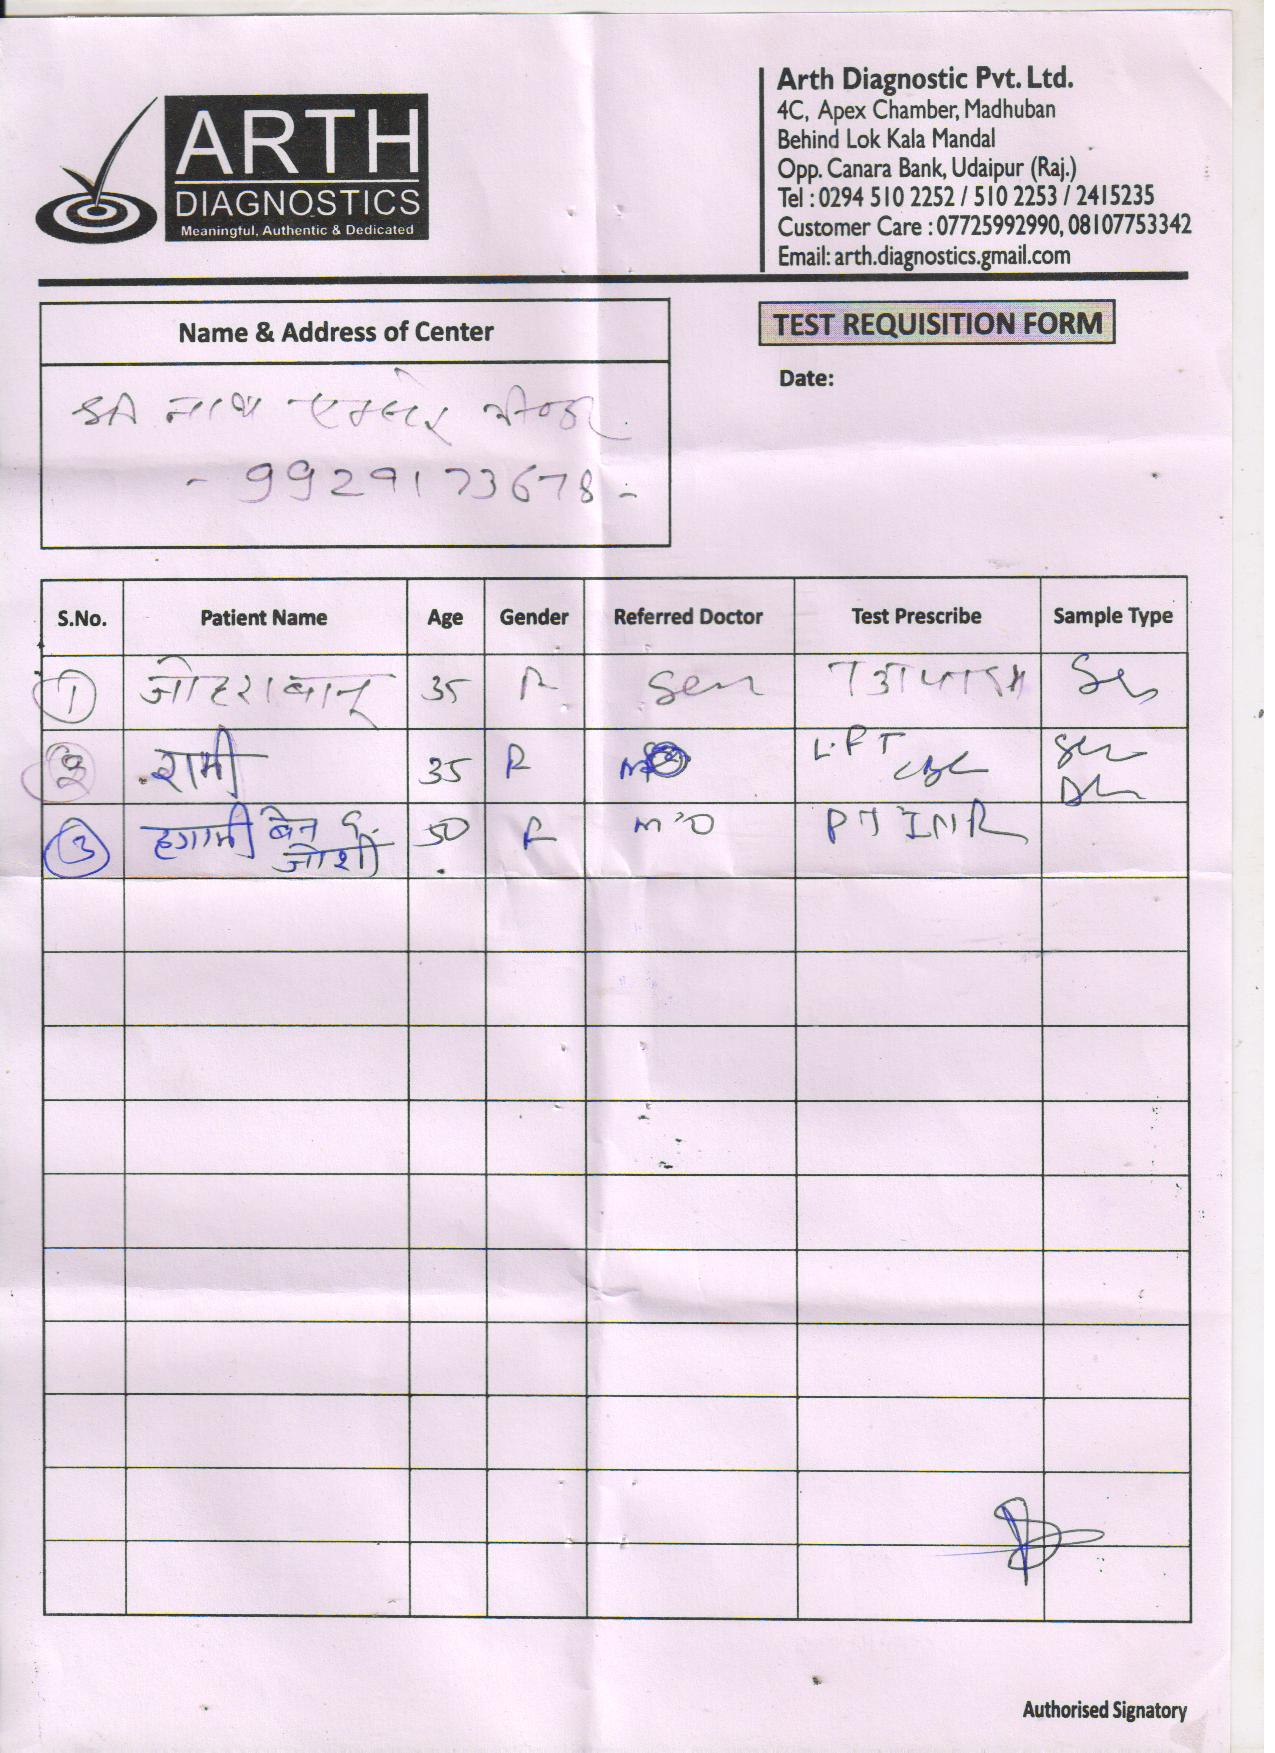 ARTH
DIAGNOSTICS
Meaningful, Authentic & Dedicated
Arth Diagnostic Pvt. Ltd.
4C, Apex Chamber, Madhuban
Behind Lok Kala Mandal
Opp. Canara Bank, Udaipur (Raj.)
Tel : 0294 510 2252 / 510 2253 / 2415235
Customer Care : 07725992990, 08107753342
Email: arth.diagnostics.gmail.com
Name & Address of Center
TEST REQUISITION FORM
Date:
नाथ
- 9929173678 -
S.No. Patient Name Age Gender Referred Doctor Test Prescribe Sample Type
1 जोहरा बानू 35 F Sen
2 रामी 35 F LFT CBC
3 हगामी बेन जोशी 50 F M'O PT INR
Authorised Signatory